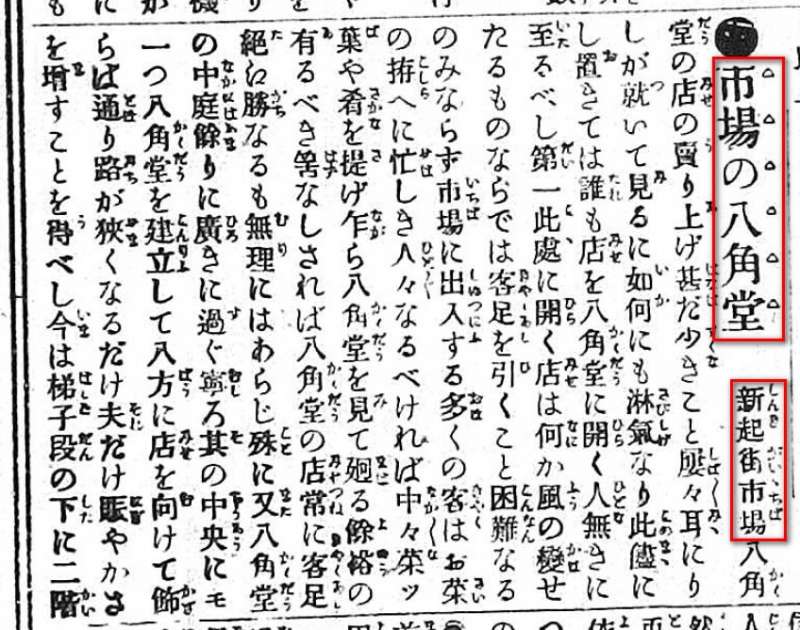 ●市場の八角堂 新起街市場八角
堂の店の賣り上げ甚だ少きこと屢々耳にり
しが就いて見るに如何にも淋氣なり此儘に
し置きては誰も店を八角堂に開く人無きに
至るべし第一此處に開く店は何か風の變せ
たるものならでは客足を引くこと困難なる
のみならず市場に出入する多くの客はお菜
の拵へに忙しき人々なるべければ中々菜ッ
葉や肴を提げ乍ら八角堂を見て廻る餘裕の
有るべき筈なしされば八角堂の店常に客足
絶え勝なるも無理にはあらじ殊に又八角堂
の中庭餘りに廣きに過ぐ寧ろ其の中央にモ
一つ八角堂を建立して八方に店を向けて飾
らば通り路が狹くなるだけ夫だけ賑やかさ
を増すことを得べし今は梯子段の下に二階